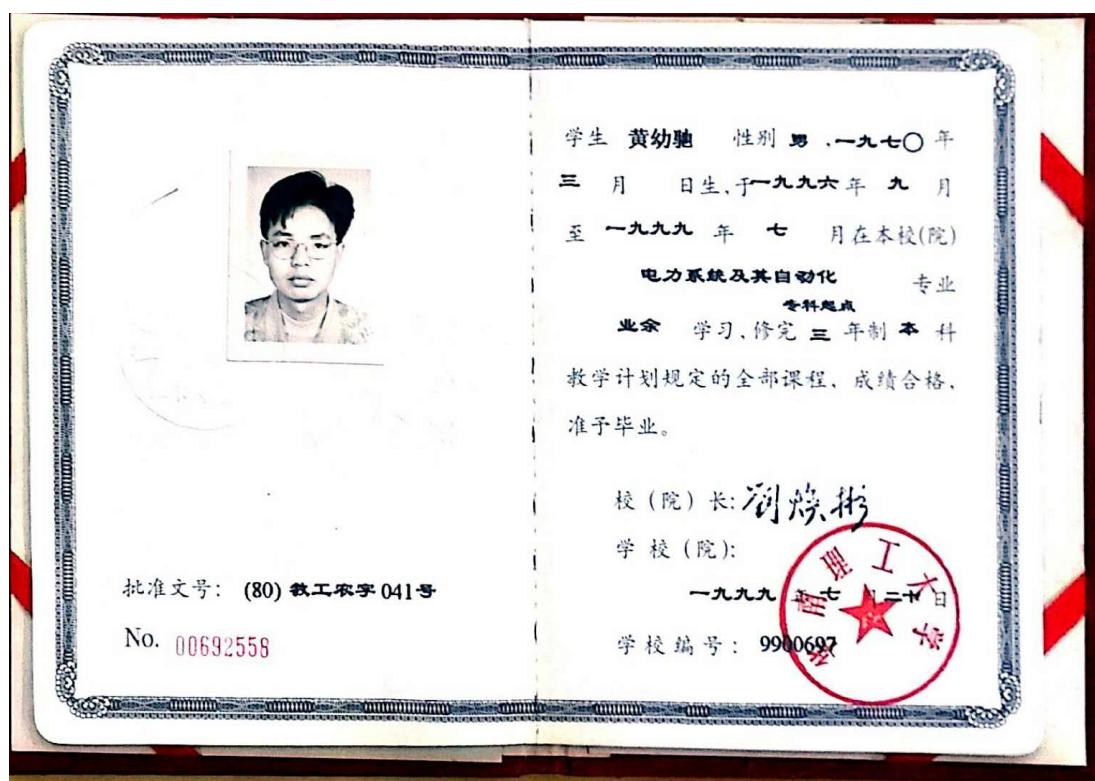 批准文号： (80) 教工农字 041号
No. 00692558
学生 黄幼驰 性别 男 ，一九七〇 年
三 月 日生，于一九九六 年 九 月
至 一九九九 年 七 月在本校(院)
电力系统及其自动化 专业
专科起点
业余 学习、修完 三 年制 本 科
教学计划规定的全部课程、成绩合格、
准予毕业。
校（院）长: 刘焕彬
学 校（院）:
一九九九 年 七 月 二十 日
学校编号： 9900697
华南理工大学